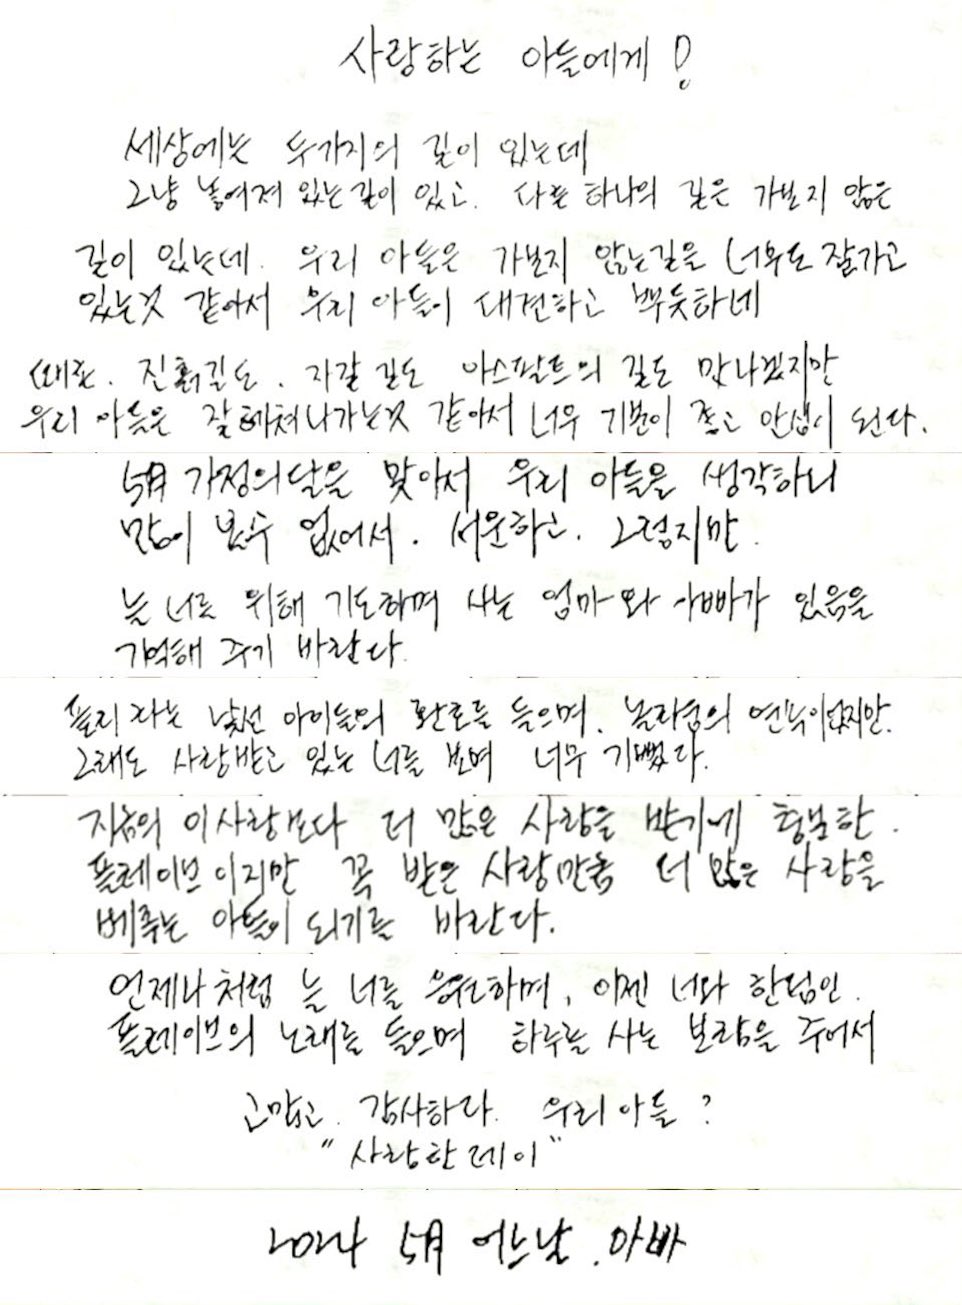 사랑하는 아들에게!
세상에는 두가지의 길이 있는데
그냥 놓여져 있는길이 있고. 다른 하나의 길은 가보지 않은
길이 있는데. 우리 아들은 가보지 않는길을 너무도 잘가고
있는것 같아서 우리 아들이 대견하고 뿌듯하네
때론. 진흙길도. 자갈길도 아스팔트의 길도 만나겠지만
우리 아들은 잘헤쳐나가는것 같아서 너무 기분이 좋고 안심이 된다.
5月 가정의달을 맞아서 우리 아들을 생각하니
많이 볼수 없어서. 서운하고. 그렇지만.
늘 너를 위해 기도하며 사는 엄마와 아빠가 있음을
기억해 주기 바란다.
플리라는 낯선 아이들의 환호를 들으며. 놀라움의 연속이었지만.
그래도 사랑받고 있는 너를 보며 너무 기뻤다.
지금의 이사랑보다 더 많은 사랑을 받기에 충분한.
플레이브이지만 꼭 받은 사랑만큼 더 많은 사랑을
베푸는 아들이 되기를 바란다.
언제나처럼 늘 너를 응원하며, 이젠 너와 한팀인.
플레이브의 노래를 들으며 하루를 사는 보람을 주어서
고맙고. 감사하다. 우리아들?
"사랑한데이"
2024 5月 어느날. 아빠